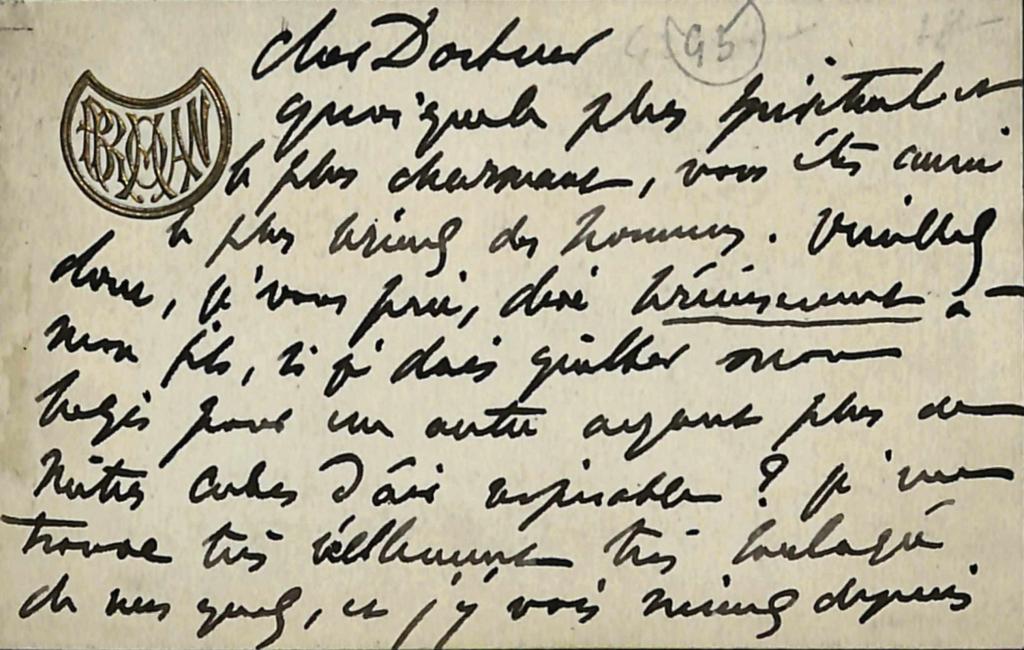 45
Cher Docteur
quoique le plus spirituel et
le plus charmant, vous êtes aussi
le plus sérieux des hommes. Veuillez
donc, je vous prie, dire sérieusement à
mon fils, si je dois quitter mon
logis pour un autre ayant plus de
mètres cubes d'air respirable ? je me
trouve très réellement très soulagé
de mes yeux, et j'y vois mieux depuis